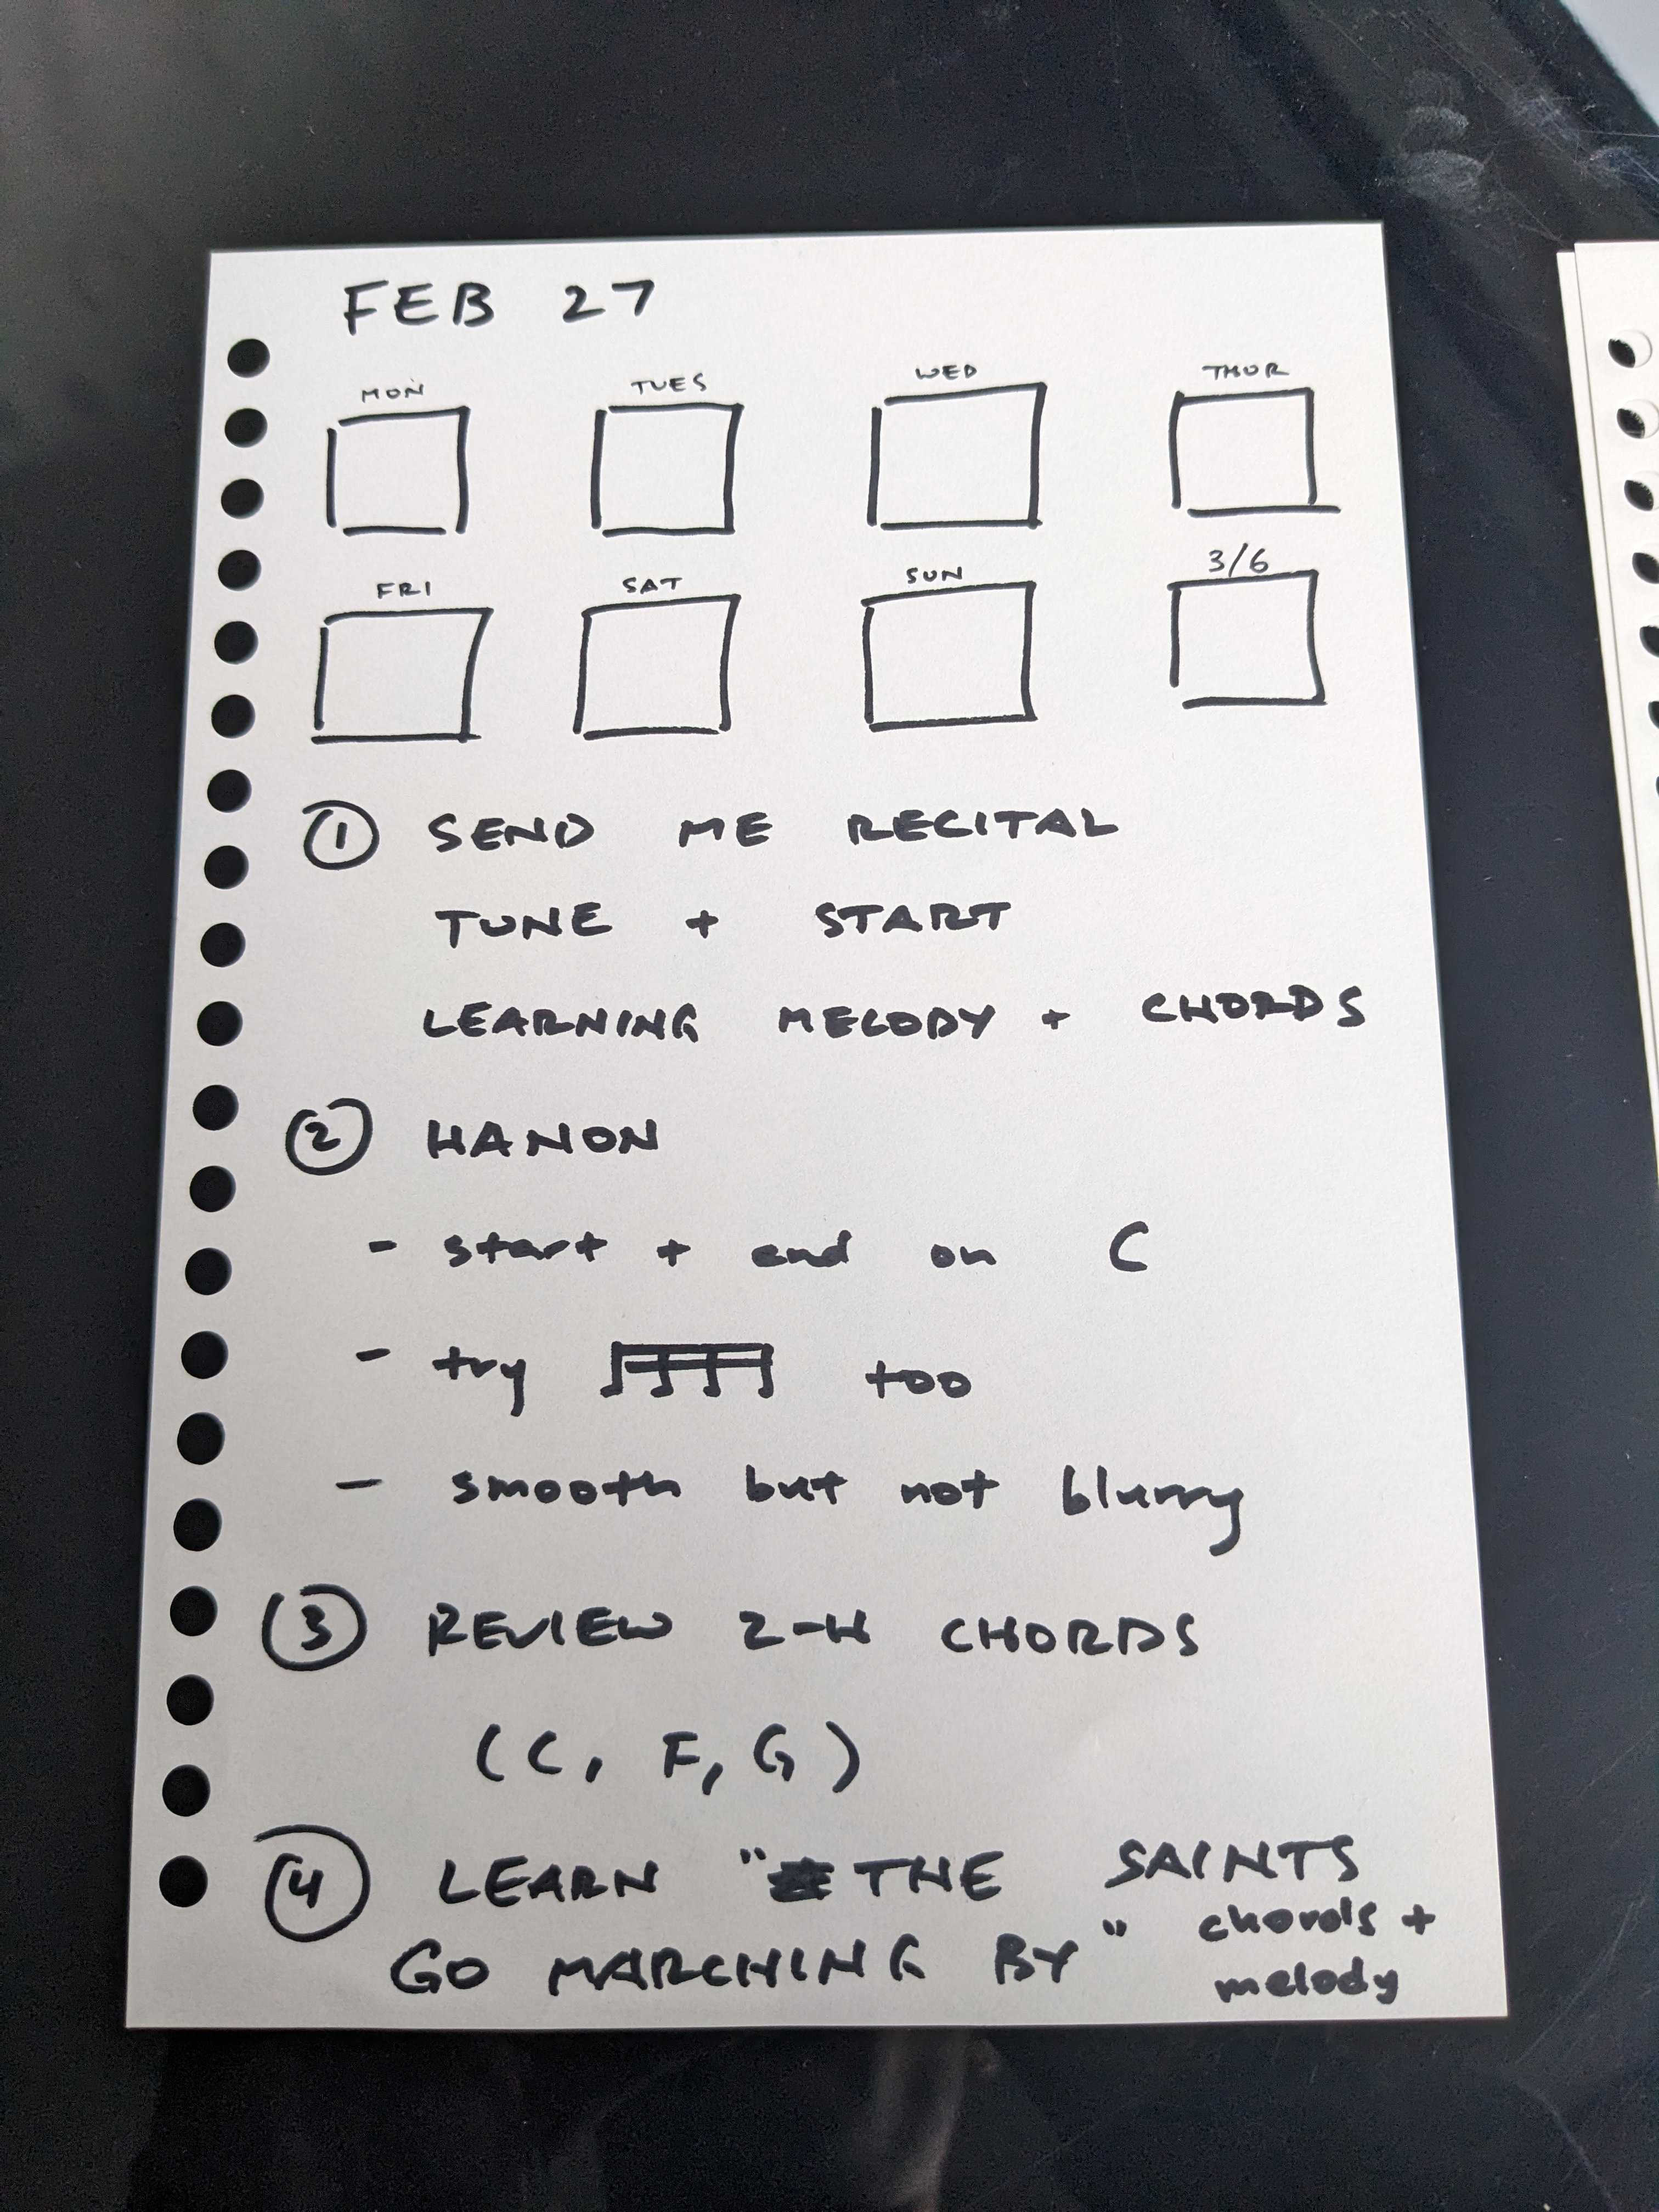 FEB 27
MON TUES WED THUR
FRI SAT SUN 3/6
① SEND ME RECITAL
TUNE + START
LEARNING MELODY + CHORDS
② HANON
- start + end on C
- try too
- smooth but not blurry
③ REVIEW 2-H CHORDS
(C, F, G)
④ LEARN "THE SAINTS
GO MARCHING BY" chords +
melody